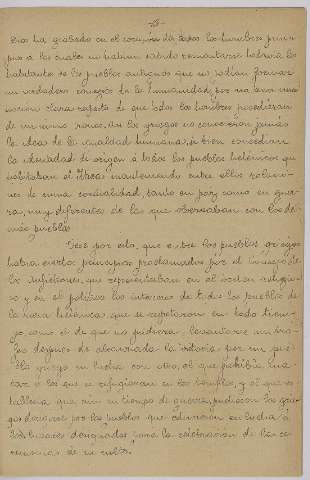 -3-
Dios ha grabado en el corazón de todos los hombres prin-
cipios a los cuales no habían sabido remontarse todavía los
habitantes de los pueblos antiguos que no podían formar
un verdadero concepto de la humanidad por no tener una
noción clara respecto de que todos los hombres procedieran
de un mismo tronco. Así los griegos no conocieron jamás
la idea de la igualdad humana, si bien concedían
la identidad de origen a todos los pueblos helénicos que
habitaban el Grecia manteniendo entre ellos relacio-
nes de suma cordialidad, tanto en paz como en gue-
rra, muy diferentes de las que observaban con los de-
más pueblos.
Vese por esto, que entre los pueblos griegos
había ciertos principios proclamados por el Consejo de
los Anfictiones, que representaban en el orden religio-
so y en el político los intereses de todos los pueblos de
la raza helénica, que se respetaron en todo tiem-
po, como el de que no pudiera levantarse un tro-
feo después de alcanzada la victoria por un pue-
blo griego en lucha con otro, el que prohibía ma-
tar a los que se refugiaran en los templos, y el que es-
tablecía que aún en tiempo de guerra, pudieran los grie-
gos dirigirse por los pueblos que estuvieran en lucha a
los lugares designados para la celebración de las ce-
remonias de su culto.